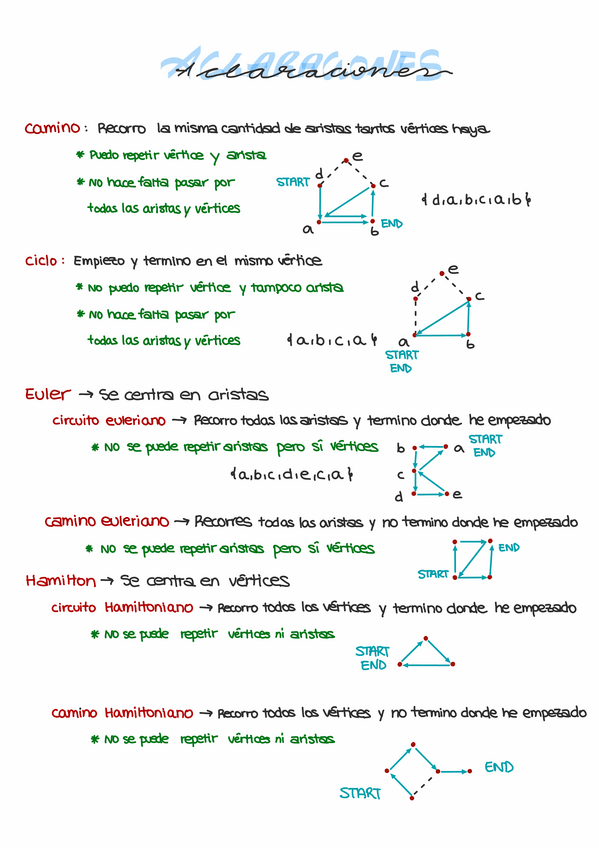 ACLARACIONES
Aclaraciones
Camino : Recorro la misma cantidad de aristas tantos vértices haya
* Puedo repetir vértice y arista
* No hace falta pasar por
todas las aristas y vértices
START
d
e
c
a
b
END
{d,a,b,c,a,b}
Ciclo : Empiezo y termino en el mismo vértice
* No puedo repetir vértice y tampoco arista
* No hace falta pasar por
todas las aristas y vértices
{a,b,c,a}
d
e
c
a
b
START
END
Euler → Se centra en aristas
circuito euleriano → Recorro todas las aristas y termino donde he empezado
* No se puede repetir aristas pero sí vértices
{a,b,c,d,e,c,a}
b
a
START
END
c
d
e
camino euleriano → Recorres todas las aristas y no termino donde he empezado
* No se puede repetir aristas pero sí vértices
START
END
Hamilton → Se centra en vértices
circuito Hamiltoniano → Recorro todos los vértices y termino donde he empezado
* No se puede repetir vértices ni aristas
START
END
camino Hamiltoniano → Recorro todos los vértices y no termino donde he empezado
* No se puede repetir vértices ni aristas
START
END